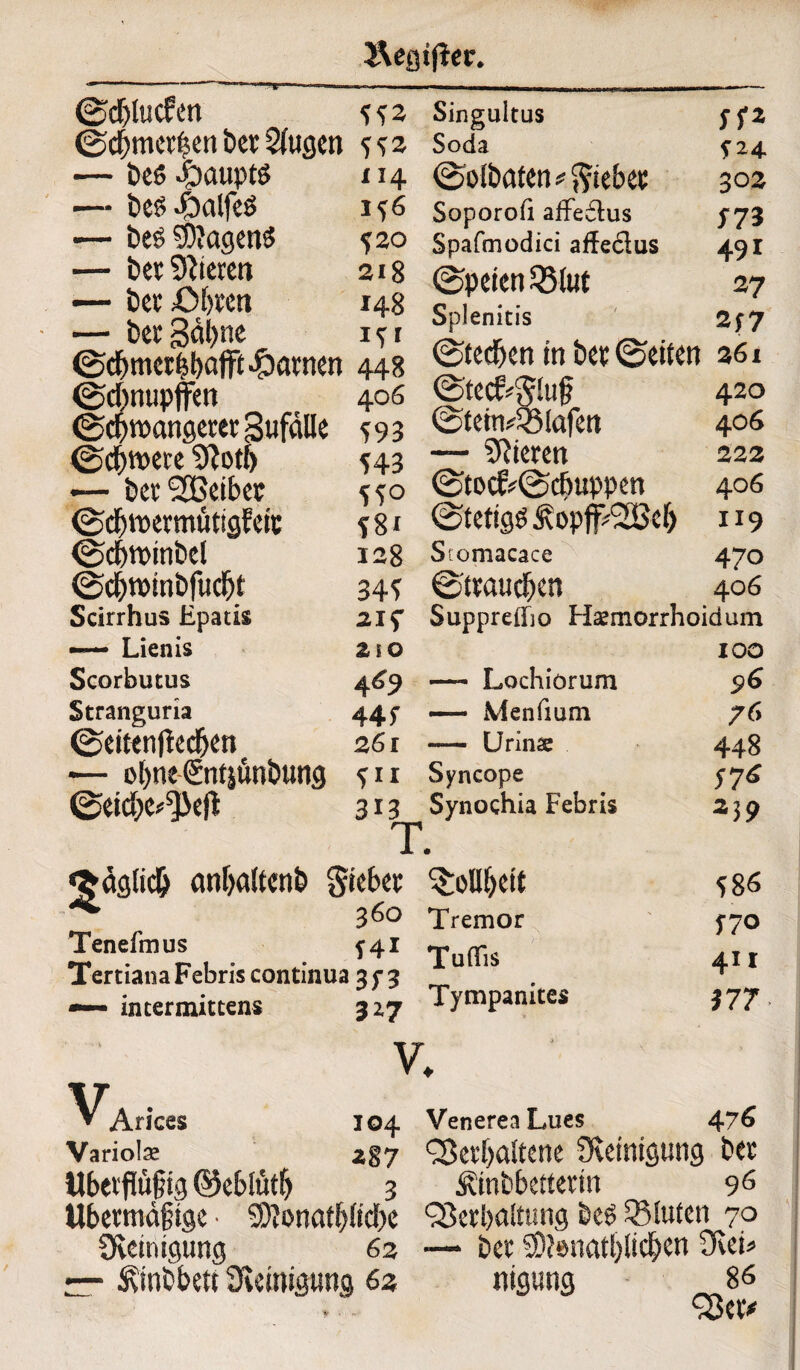 Register.
Schlucken 552
Schmertzen der Augen 552
— des Haupts 114
— des Halses 156
— des Magens 520
— der Nieren 218
— der Ohren 148
— der Zähne 151
Schmertzhafft Harnen 448
Schnupffen 406
Schwangerer Zufälle 593
Schwere Noth 543
— der Weiber 550
Schwermütigkeit 581
Schwindel 128
Schwindsucht 345
Scirrhus Epatis 215
— Lienis 210
Scorbutus 469
Stranguria 445
Seitenstechen 261
— ohne Entzündung 511
Seiche-Pest 313
Singultus 552
Soda 524
Soldaten-Fieber 302
Soporosi affectus 573
Spasmodici affectus 491
Speien Blut 27
Splenitis 257
Stechen in der Seiten 261
Steck-Fluß 420
Stein-Blasen 406
— Nieren 222
Stock-Schuppen 406
Stetigs Kopff-Weh 119
Stomacace 470
Strauchen 406
Suppressio Hæmorrhoidum
100
— Lochiorum 96
— Mensium 76
— Urinæ 448
Syncope 576
Synochia Febris 239
T.
Täglich anhaltend Fieber
360
Tenesmus 541
Tertiana Febris continua 353
— intermittens 327
Tollheit 586
Tremor 570
Tussis 411
Tympanites 377
V.
VArices 104
Variolæ 287
Uberflüßig Geblüth 3
Ubermäßige Monathliche
Reinigung 62
— Kindbett Reinigung 62
Venerea Lues 476
Verhaltene Reinigung der
Kindbetterin 96
Verhaltung des Bluten 70
— der Monathlichen Rei-
nigung 86
Ver-